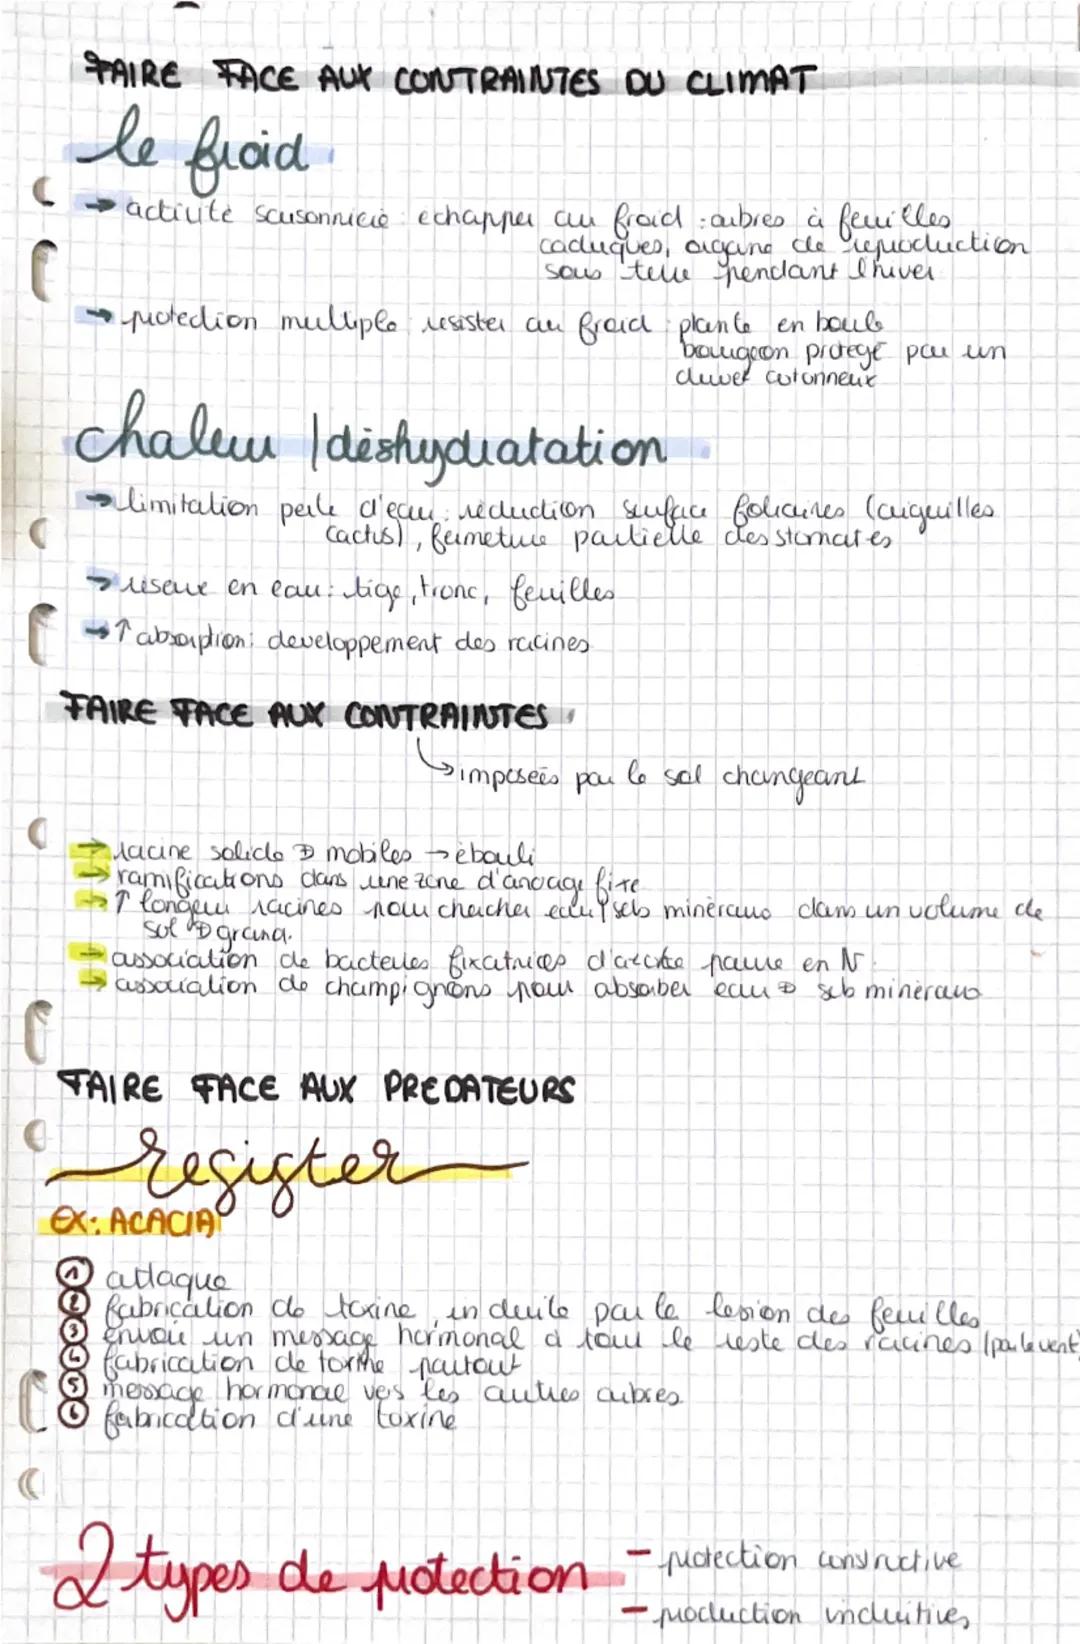 FAIRE FACE AUX CONTRAINTES DU CLIMAT
le froid
→ activité saisonnière : echapper au froid : arbres à feuilles
caduques, organe de reproduction
sous terre pendant l'hiver
→ protection multiple resister au froid : plante en boule
bourgeon protegé par un
duvet cotonneux
chaleur / déshydratation
→ limitation perte d'eau : réduction surface foliaires (aiguilles
cactus), fermeture partielle des stomates
→ reserve en eau : tige, tronc, feuilles
→ ↑ absorption : developpement des racines
FAIRE FACE AUX CONTRAINTES
↳ imposées par le sol changeant
→ racine solide ⊕ mobiles → ébouli
→ ramifications dans une zone d'ancrage fixe
→ ↑ longeur racines pour chercher eau / sels minéraux dans un volume de
sol ⊕ grand.
→ association de bacteries fixatrices d'azote pauvre en N
→ association de champignons pour absorber eau ⊕ sels minéraux
FAIRE FACE AUX PREDATEURS
resister
EX : ACACIA
1 attaque
2 fabrication de toxine induite par la lesion des feuilles
3 envoie un message hormonal à tout le reste des racines (par le vent)
4 fabrication de toxine partout
5 message hormonal vers les autres arbres
6 fabrication d'une toxine
2 types de protection - protection constructive
- production inductives